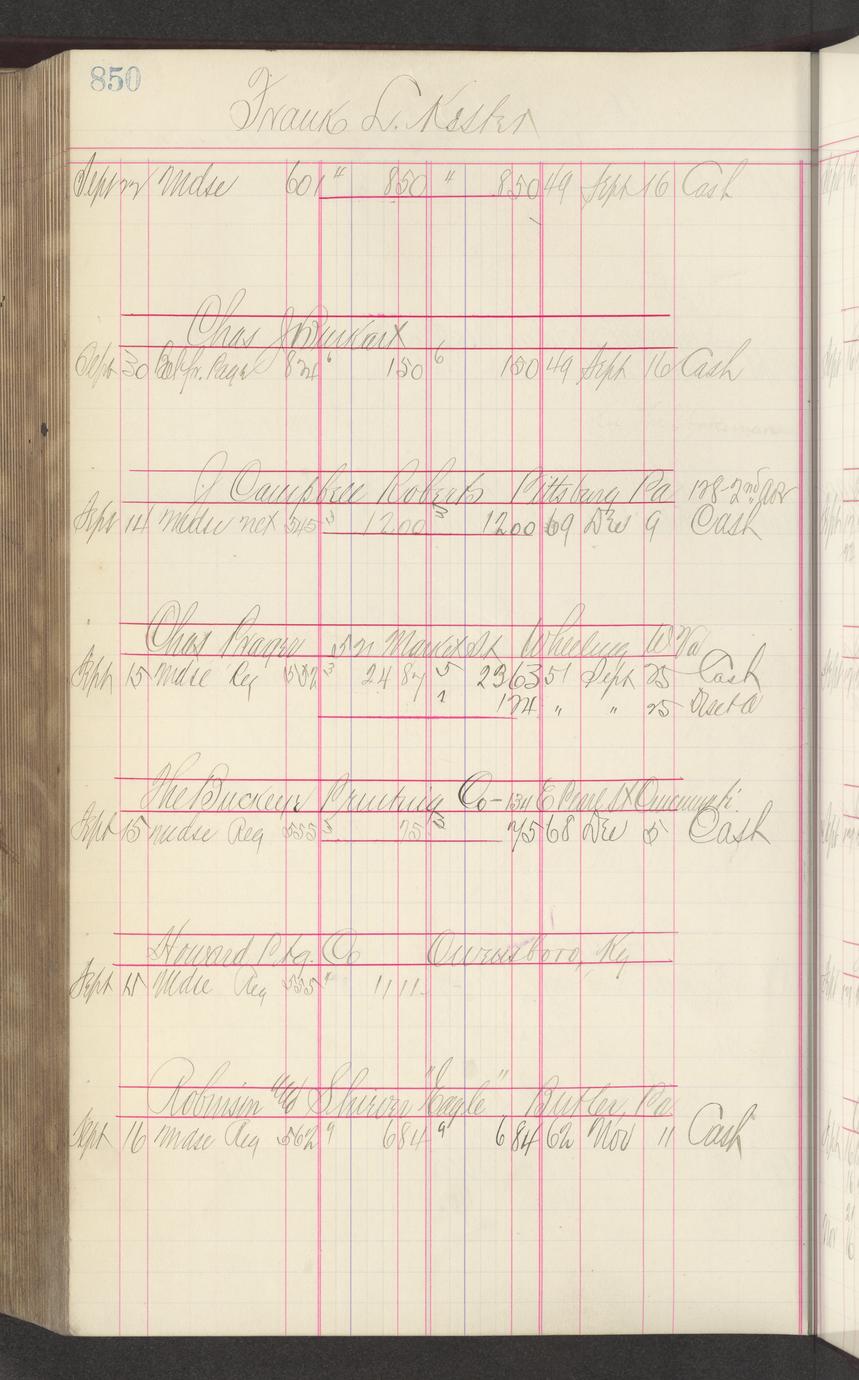 850
Frank L. Kester
Sept 22 Mdse 601 " 850 " 850 49 Sept 16 Cash
Chas J Burkart
Sept 30 Bal fr. Page 824 6 150 6 150 49 Sept 16 Cash
J Campbell Roberts Pittsburg Pa 128-2nd Ave
Sept 14 Mdse net 545 3 1200 3 1200 69 Dec 9 Cash
Chas Prager 52 Market St Wheeling W Va
Sept 15 Mdse Reg 552 3 2487 5 2363 51 Sept 25 Cash
1 124 " " 25 Disct
The Buckeye Printing Co - 134 E Pearl St Cincinnati
Sept 15 Mdse Reg 555 5 75 5 75 68 Dec 5 Cash
Howard Ptg. Co Owensboro, Ky
Sept 15 Mdse Reg 555 " 1111
Robinson and Shirver "Eagle" Butler, Pa
Sept 16 Mdse Reg 562 9 684 9 684 62 Nov 11 Cash